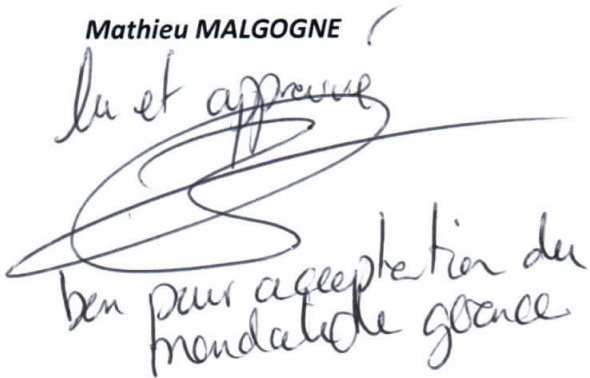 Mathieu MALGOGNE
lu et approuvé
bon pour acceptation du
mandat de gérance